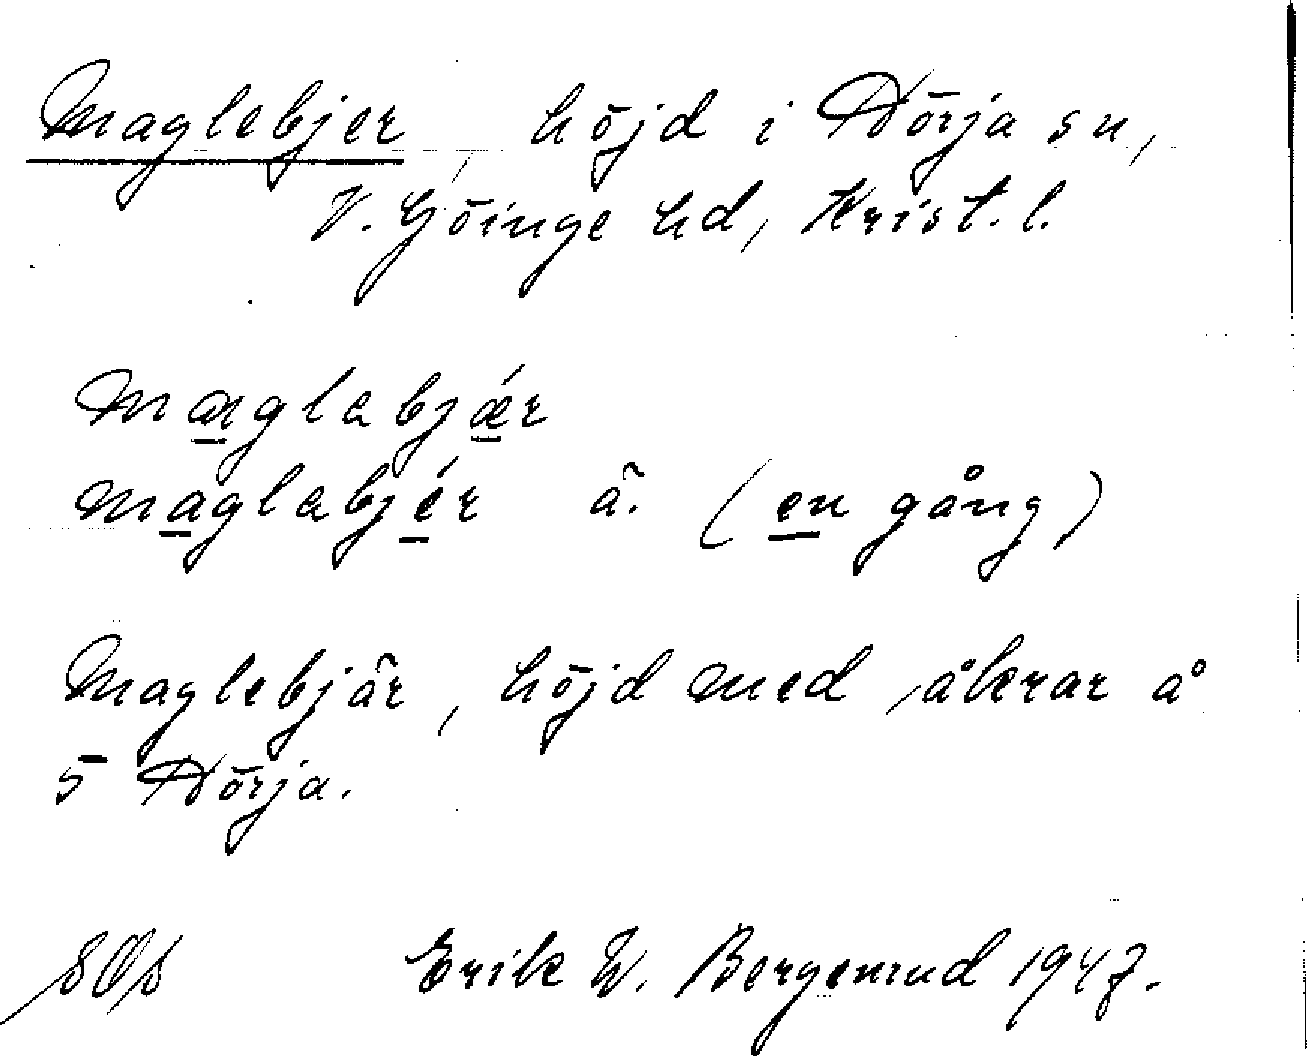 Maglebjer, höjd i Nörja sn,
V. Göinge hd, Krist. l.
mæglabjǽr
maglabjér ä. (en gång)
Maglebjär, höjd med åkrar å
5 Nörja.
Erik W. Bergenrud 1947.